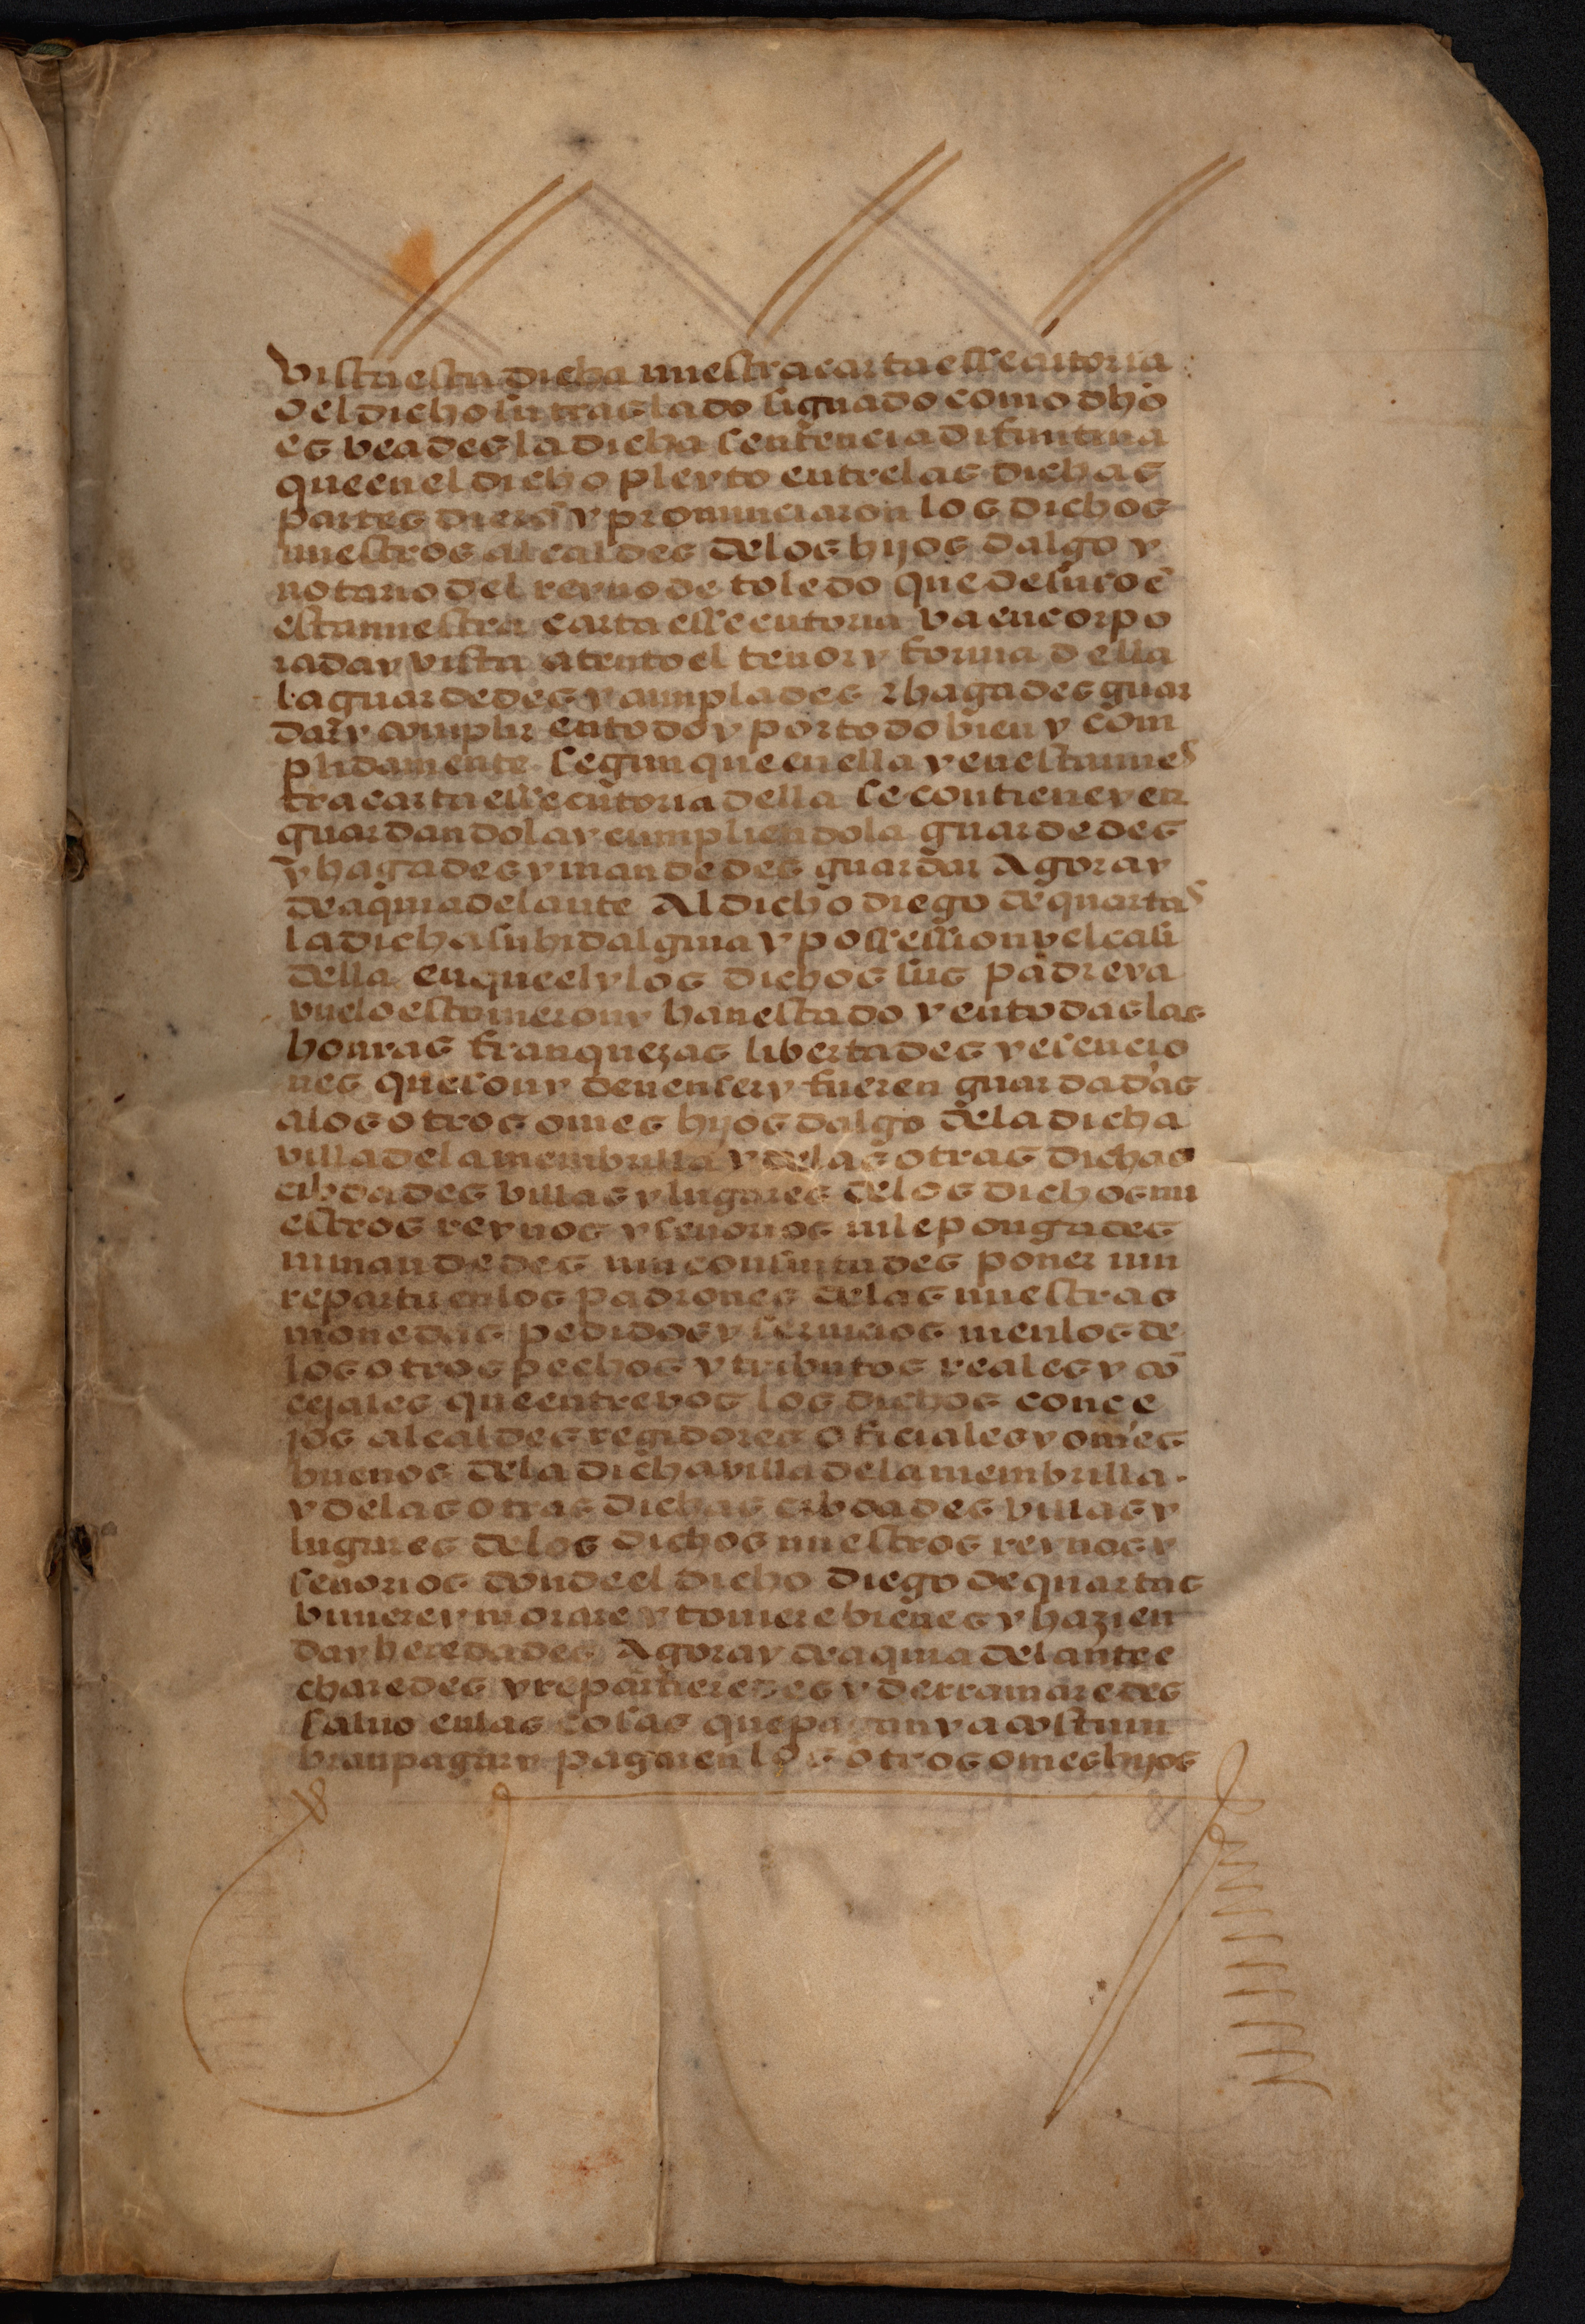 vista esta dicha nuestra carta essecutoria
o el dicho su traslado signado como dho
es veades la dicha sentencia difinitiua
que en el dicho pleyto entre las dichas
partes dierõ y pronunciaron los dichos
nuestros alcaldes delos hijos dalgo y
notario del reyno de toledo que de suso ẽ
esta nuestra carta essecutoria va encorpo
rada y vista atento el tenor y forma della
la guardedes y cumplades z hagades guar
dar y complir en todo y por todo bien y com
plidamente segun que en ella y en esta nues
tra carta essecutoria della se contiene y en
guardandola y cumpliendola guardedes
y hagades y mandedes guardar Agora y
de aqui adelante Al dicho diego de quartas
la dicha su hidalguia y possession vel casi
della en que el y los dichos sus padre y a
vuelo estouieron y han estado y en todas las
honras franquezas libertades y esencio
nes que son y deuen ser y fueren guardadas
a los otros omes hijos dalgo dela dicha
villa dela membrilla y delas otras dichas
cibdades villas y lugares delos dichos nu
estros reynos y señorios ni le pongades
ni mandedes nin consintades poner nin
repartir en los padrones delas nuestras
monedas pedidos y seruicios ni en los de
los otros pechos y tributos reales y cõ
cejales que entre vos los dichos conce
jos alcaldes regidores oficiales y omes
buenos dela dicha villa dela membrilla.
y delas otras dichas cibdades villas y
lugares delos dichos nuestros reynos y
señorios donde el dicho diego de quartas
biuiere y morare y touiere bienes y hazien
da y heredades Agora y de aqui adelante e
charedes y repartieredes y derramaredes
saluo en las cosas que pagan y acostum
bran pagar y pagaren los otros omes hijos